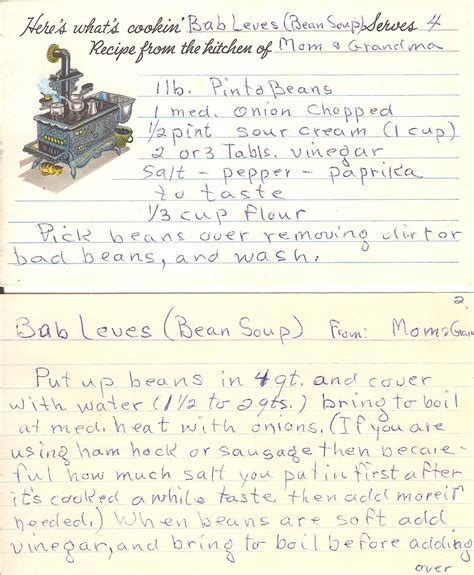 Here's what's cookin' Bab Leves (Bean Soup) Serves 4
Recipe from the kitchen of Mom & Grandma
1 lb. Pinto Beans
1 med. onion chopped
1/2 pint sour cream (1 cup)
2 or 3 Tabls. vinegar
Salt - pepper - paprika
to taste
1/3 cup flour
Pick beans over removing dirt or
bad beans, and wash.
2.
Bab Leves (Bean Soup) From: Mom & Gran
Put up beans in 4 qt. and cover
with water (1 1/2 to 2 qts.) bring to boil
at med. heat with onions. (If you are
using ham hock or sausage then becare-
ful how much salt you put in first after
it's cooked a while taste then add more if
needed.) When beans are soft add
vinegar, and bring to boil before adding
over